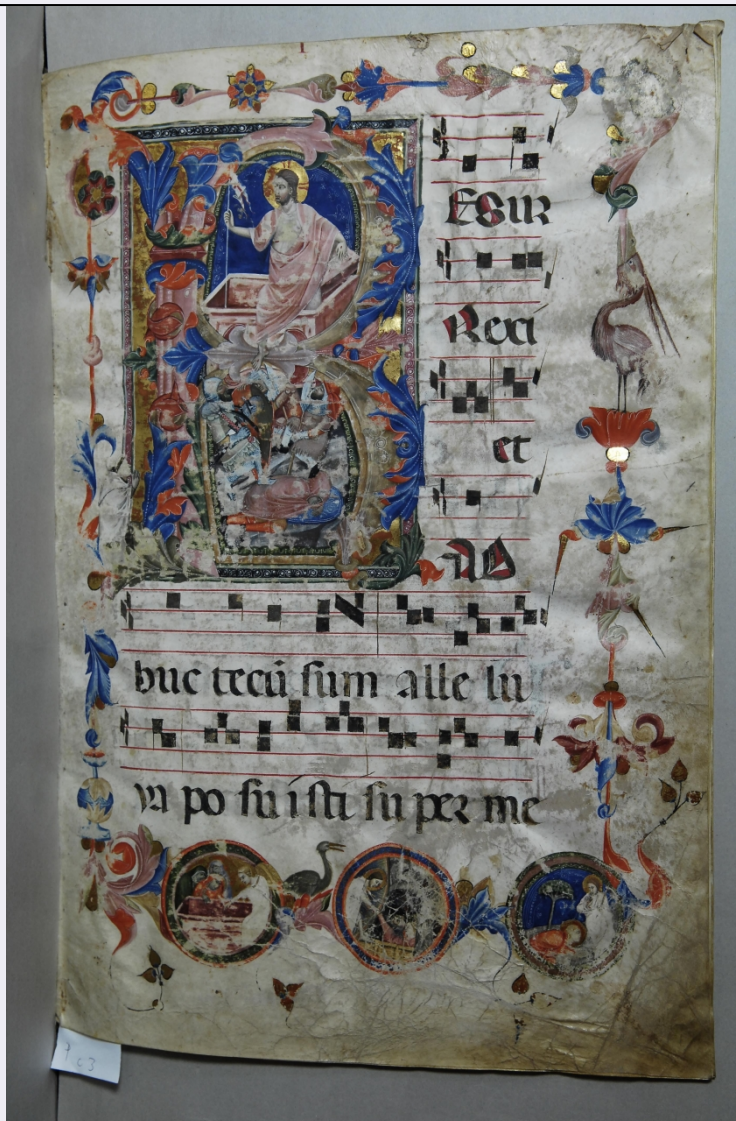 I
RESUR
Rexi
et
AD
huc tecū sum alle lu
ya po su i sti su per me